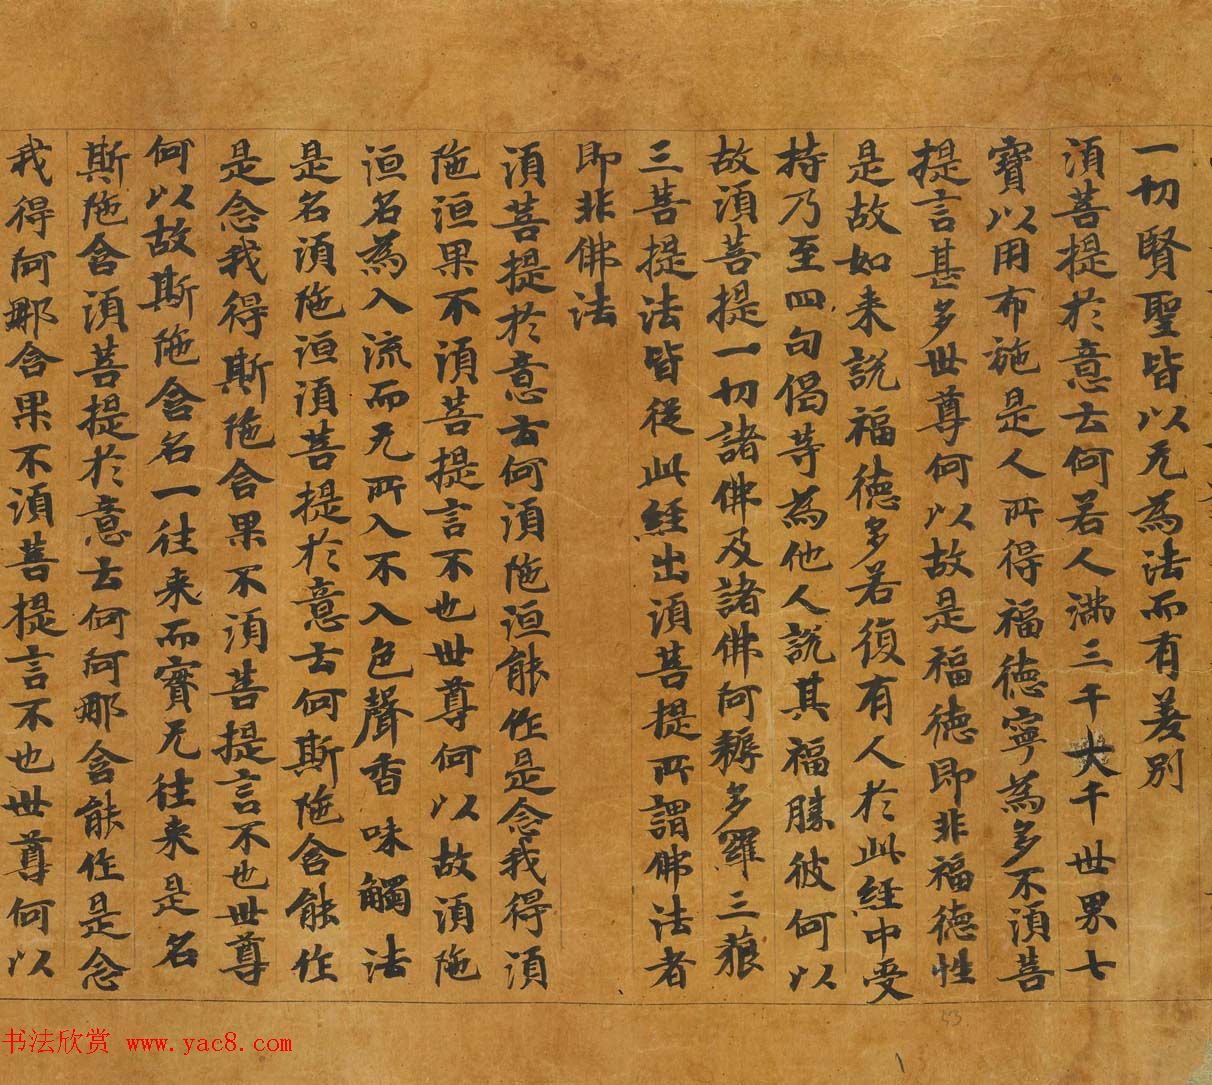 一切賢聖皆以无為法而有差別
須菩提於意云何若人滿三千大千世界七
寶以用布施是人所得福德寧為多不須菩
提言甚多世尊何以故是福德即非福德性
是故如来說福德多若復有人於此經中受
持乃至四句偈等為他人說其福勝彼何以
故須菩提一切諸佛及諸佛阿耨多羅三藐
三菩提法皆從此經出須菩提所謂佛法者
即非佛法
須菩提於意云何須陁洹能作是念我得須
陁洹果不須菩提言不也世尊何以故須陁
洹名為入流而无所入不入色聲香味觸法
是名須陁洹須菩提於意云何斯陁含能作
是念我得斯陁含果不須菩提言不也世尊
何以故斯陁含名一往来而實无往来是名
斯陁含須菩提於意云何阿那含能作是念
我得阿那含果不須菩提言不也世尊何以
书法欣赏 www.yac8.com